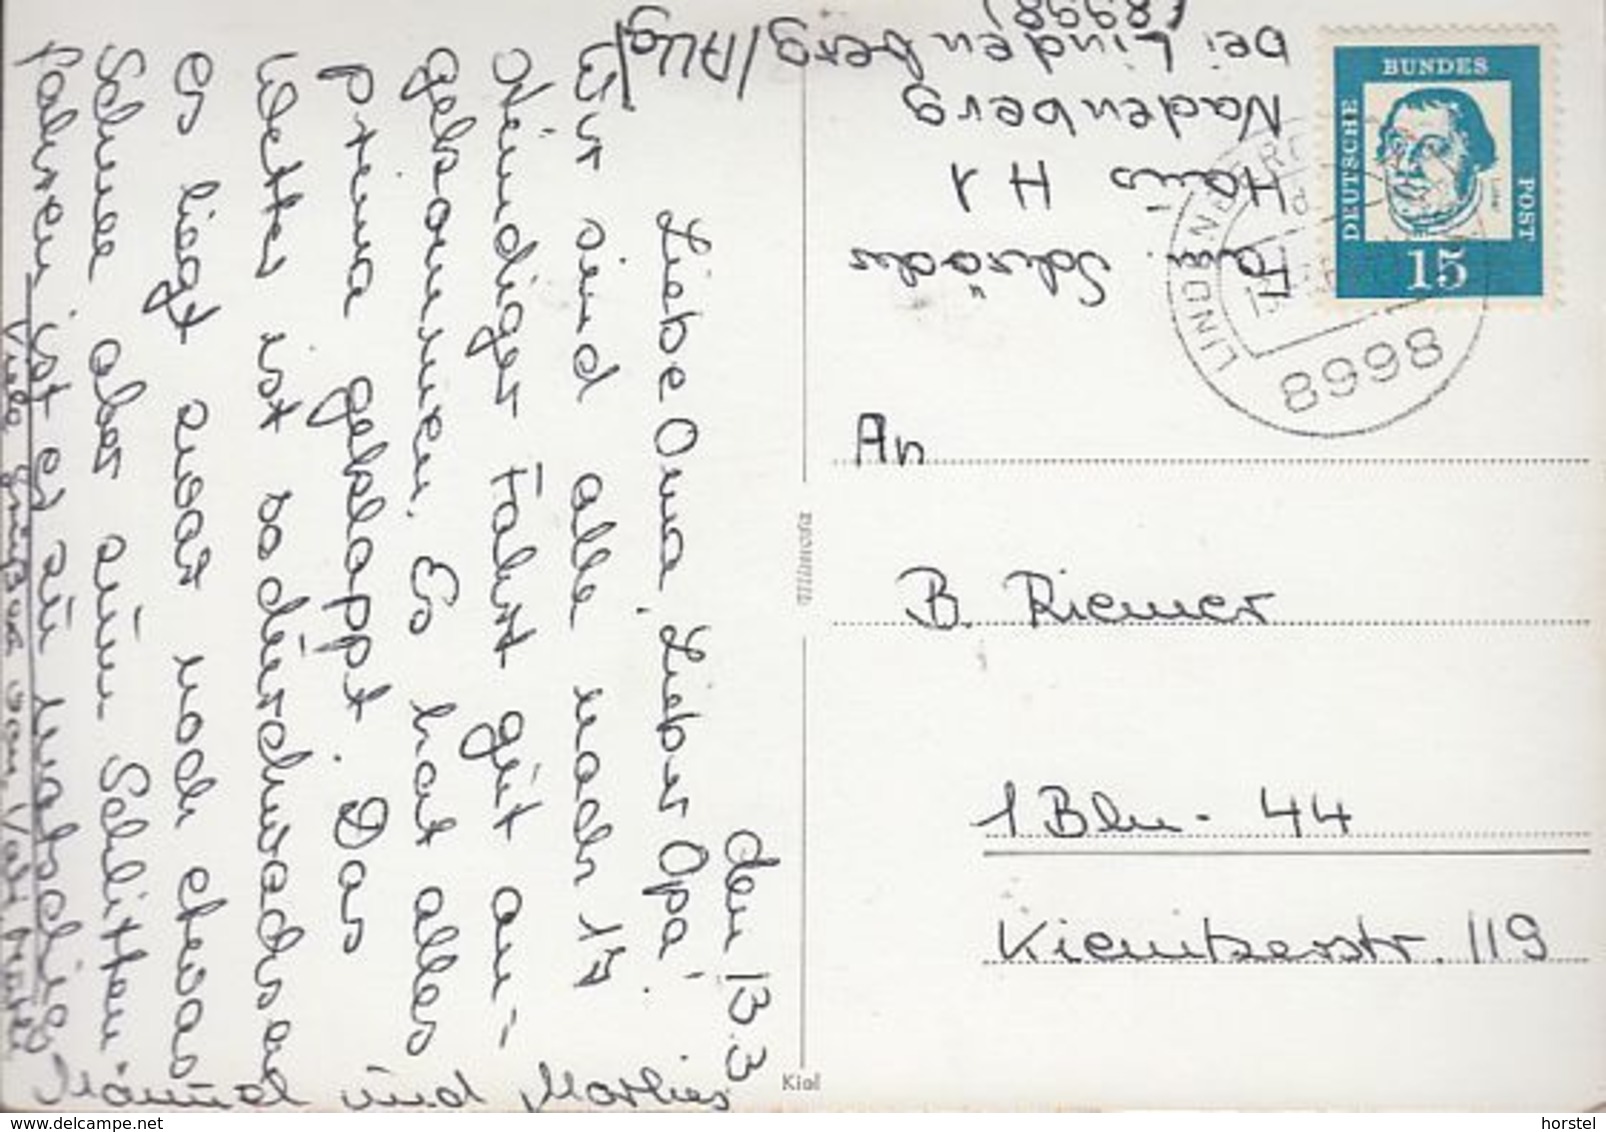 den 13.3
Liebe Oma, Lieber Opa!
Wir sind alle nach 17
stündiger Fahrt gut an-
gekommen. Es hat alles
prima geklappt. Das
Wetter ist so durchwachsen
es liegt zwar noch etwas
Schnee aber zum Schlitten-
fahren, ist es zu matschig
Viele Grüße von
Manuel und Marlies
Fam. Schröder
Haus H 1
Nadenberg
bei Lindenberg/Allg/
(8998)
DEUTSCHE
BUNDES
POST
Luther
15
8998
An
B. Riemer
1 Bln - 44
Kienitzerstr. 119
Ultimosa
Kiel
www.delcampe.net
horstel